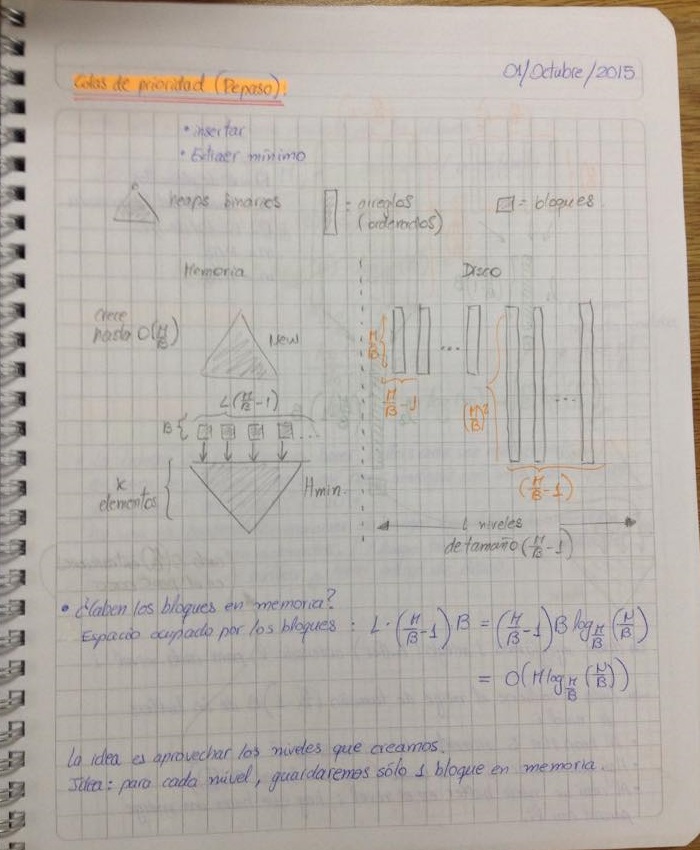 01/Octubre/2015
Colas de prioridad (Repaso):
• insertar
• Extraer mínimo
heaps binarios
= arreglos
(ordenados)
= bloques.
Memoria
Disco
crece
hasta O(M/B)
New
M/B
M/B - 1
...
(M/B)²
...
(M/B - 1)
L(M/B - 1)
B { ...
K
elementos
Hmin.
L niveles
de tamaño (M/B - 1)
• ¿Caben los bloques en memoria?
Espacio ocupado por los bloques : L · (M/B - 1) B = (M/B - 1) B log_{M/B} (N/B)
= O(M log_{M/B} (N/B))
La idea es aprovechar los niveles que creamos.
Idea: para cada nivel, guardaremos sólo 1 bloque en memoria.